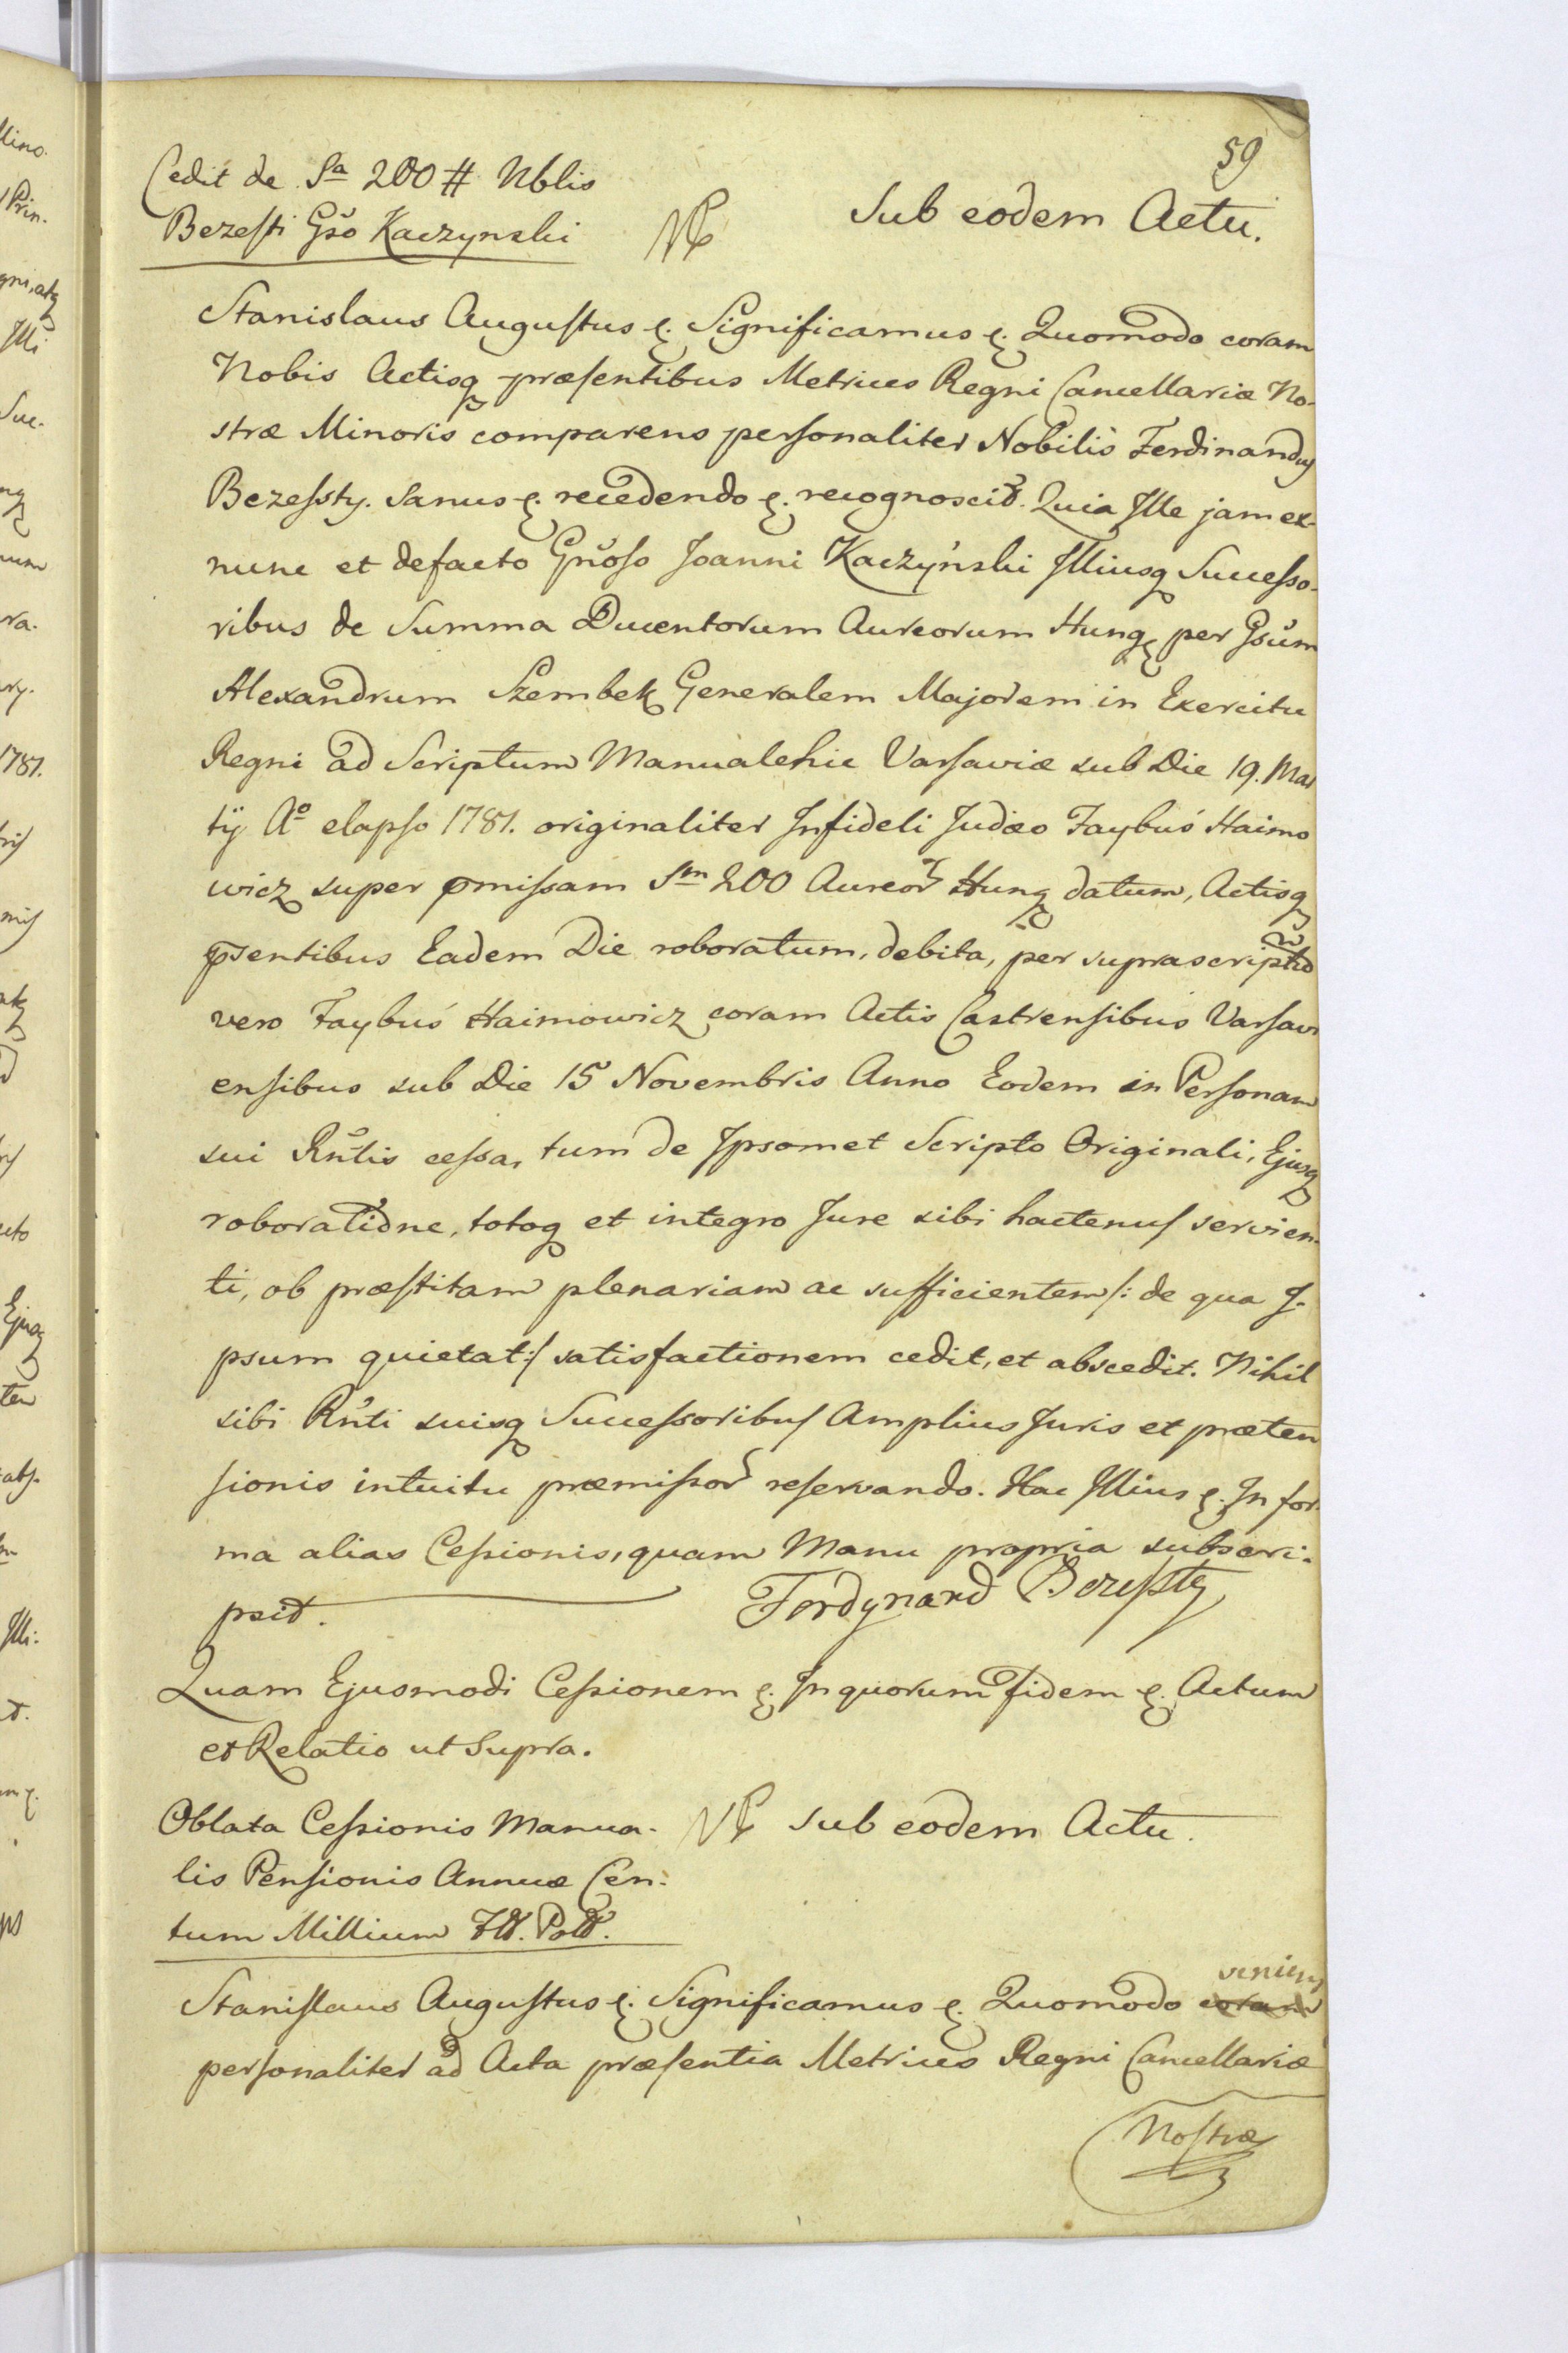 59
Cedit de Sa 200 # Nblis
Bezeſti Gso Kaczynski
Sub eodem Actu.
Stanislaus Auguſtus &. Significamus &. Quomodo coram
Nobis Actisq præſentibus Metrices Regni Cancellariæ No-
stræ Minoris comparens perſonaliter Nobilis Ferdinandus
Bezeſsty. Sanus &. recedendo &. recognoscit. Quia Ille jam ex-
nunc et defacto Gnoſo Joanni Kaczyński Illiusq Succeſso-
ribus de Summa Ducentorum Aureorum Hung. per Gsum
Alexandrum Szembek Generalem Majorem in Exercitu
Regni ad Scriptum Manuale hic Varſaviæ sub Die 19. Mar
tij Ao elapſo 1781. originaliter Infideli Judæo Faybuś Haimo
wicz super pmiſsam Sm 200 Aureor Hung datum, Actisq
psentibus Eadem Die roboratum, debita, per suprascriptu
vero Faybuś Haimowicz coram Actis Castrenſibus Varſavi
enſibus sub Die 15 Novembris Anno Eodem in Perſonam
sui Rntis ceſsa, tum de Ipsomet Scripto Originali, Ejusq
roboratione, totoq et integro Jure sibi hactenus servien-
ti, ob præſtitam plenariam ac sufficientem /: de qua I-
psum quietat :/ satisfactionem cedit, et abscedit. Nihil
sibi Rnti suisq Succeſsoribus Amplius Juris et præten
ſionis intuitu præmiſsor reſervando. Hac Illius &. In for-
ma alias Ceſsionis, quam Manu propria subscri-
psit.
Ferdynand Bezeſsty
Quam Ejusmodi Ceſsionem &. In quorum fidem &. Actum
et Relatio ut Supra.
Oblata Ceſsionis Manua-
lis Penſionis Annuæ Cen-
tum Millium Fll. Poll.
Sub eodem Actu.
Staniſlaus Auguſtus &. Significamus &. Quomodo coram veniens
perſonaliter ad Acta præſentia Metrices Regni Cancellariæ
Noſtræ